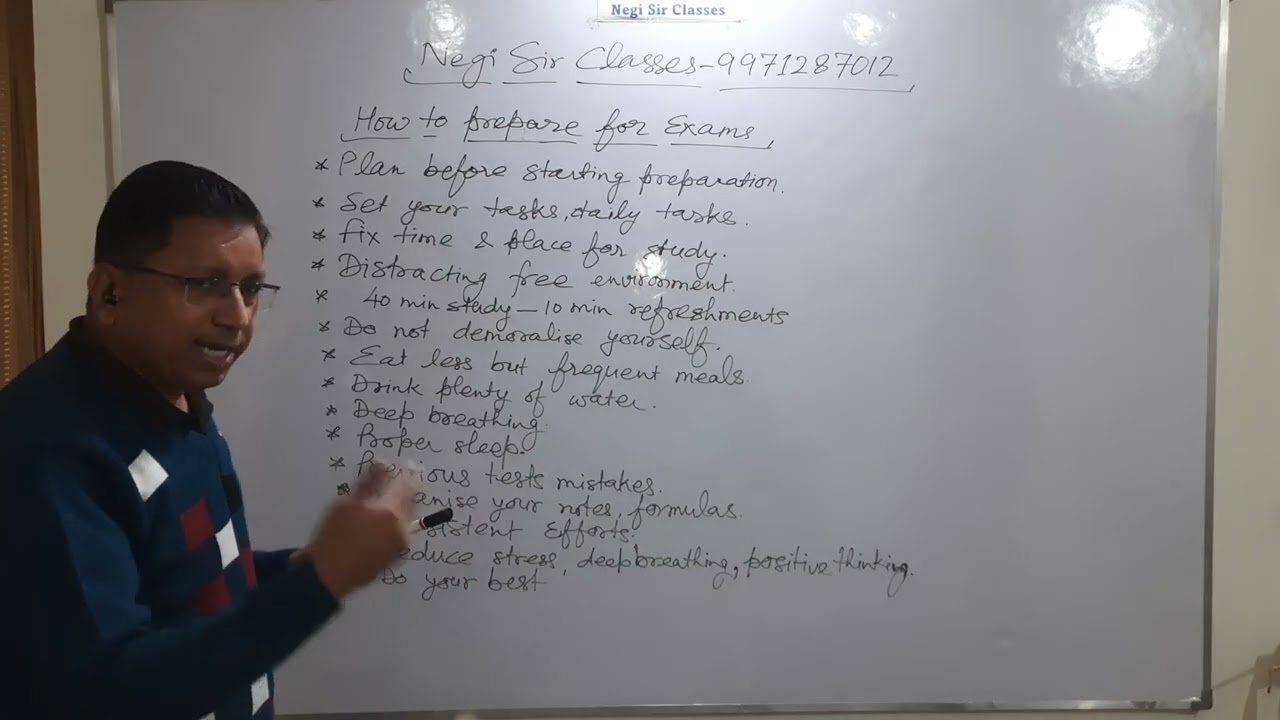 Negi Sir Classes
Negi Sir Classes-9971287012
How to prepare for Exams
* Plan before starting preparation.
* Set your tasks, daily tasks.
* fix time & place for study.
* Distracting free environment.
* 40 min study - 10 min refreshments
* Do not demoralise yourself.
* Eat less but frequent meals.
* Drink plenty of water.
* Deep breathing.
* Proper sleep.
* Previous tests mistakes.
* anise your notes, formulas.
sistent Efforts.
educe stress, deep breathing, positive thinking.
Do your best